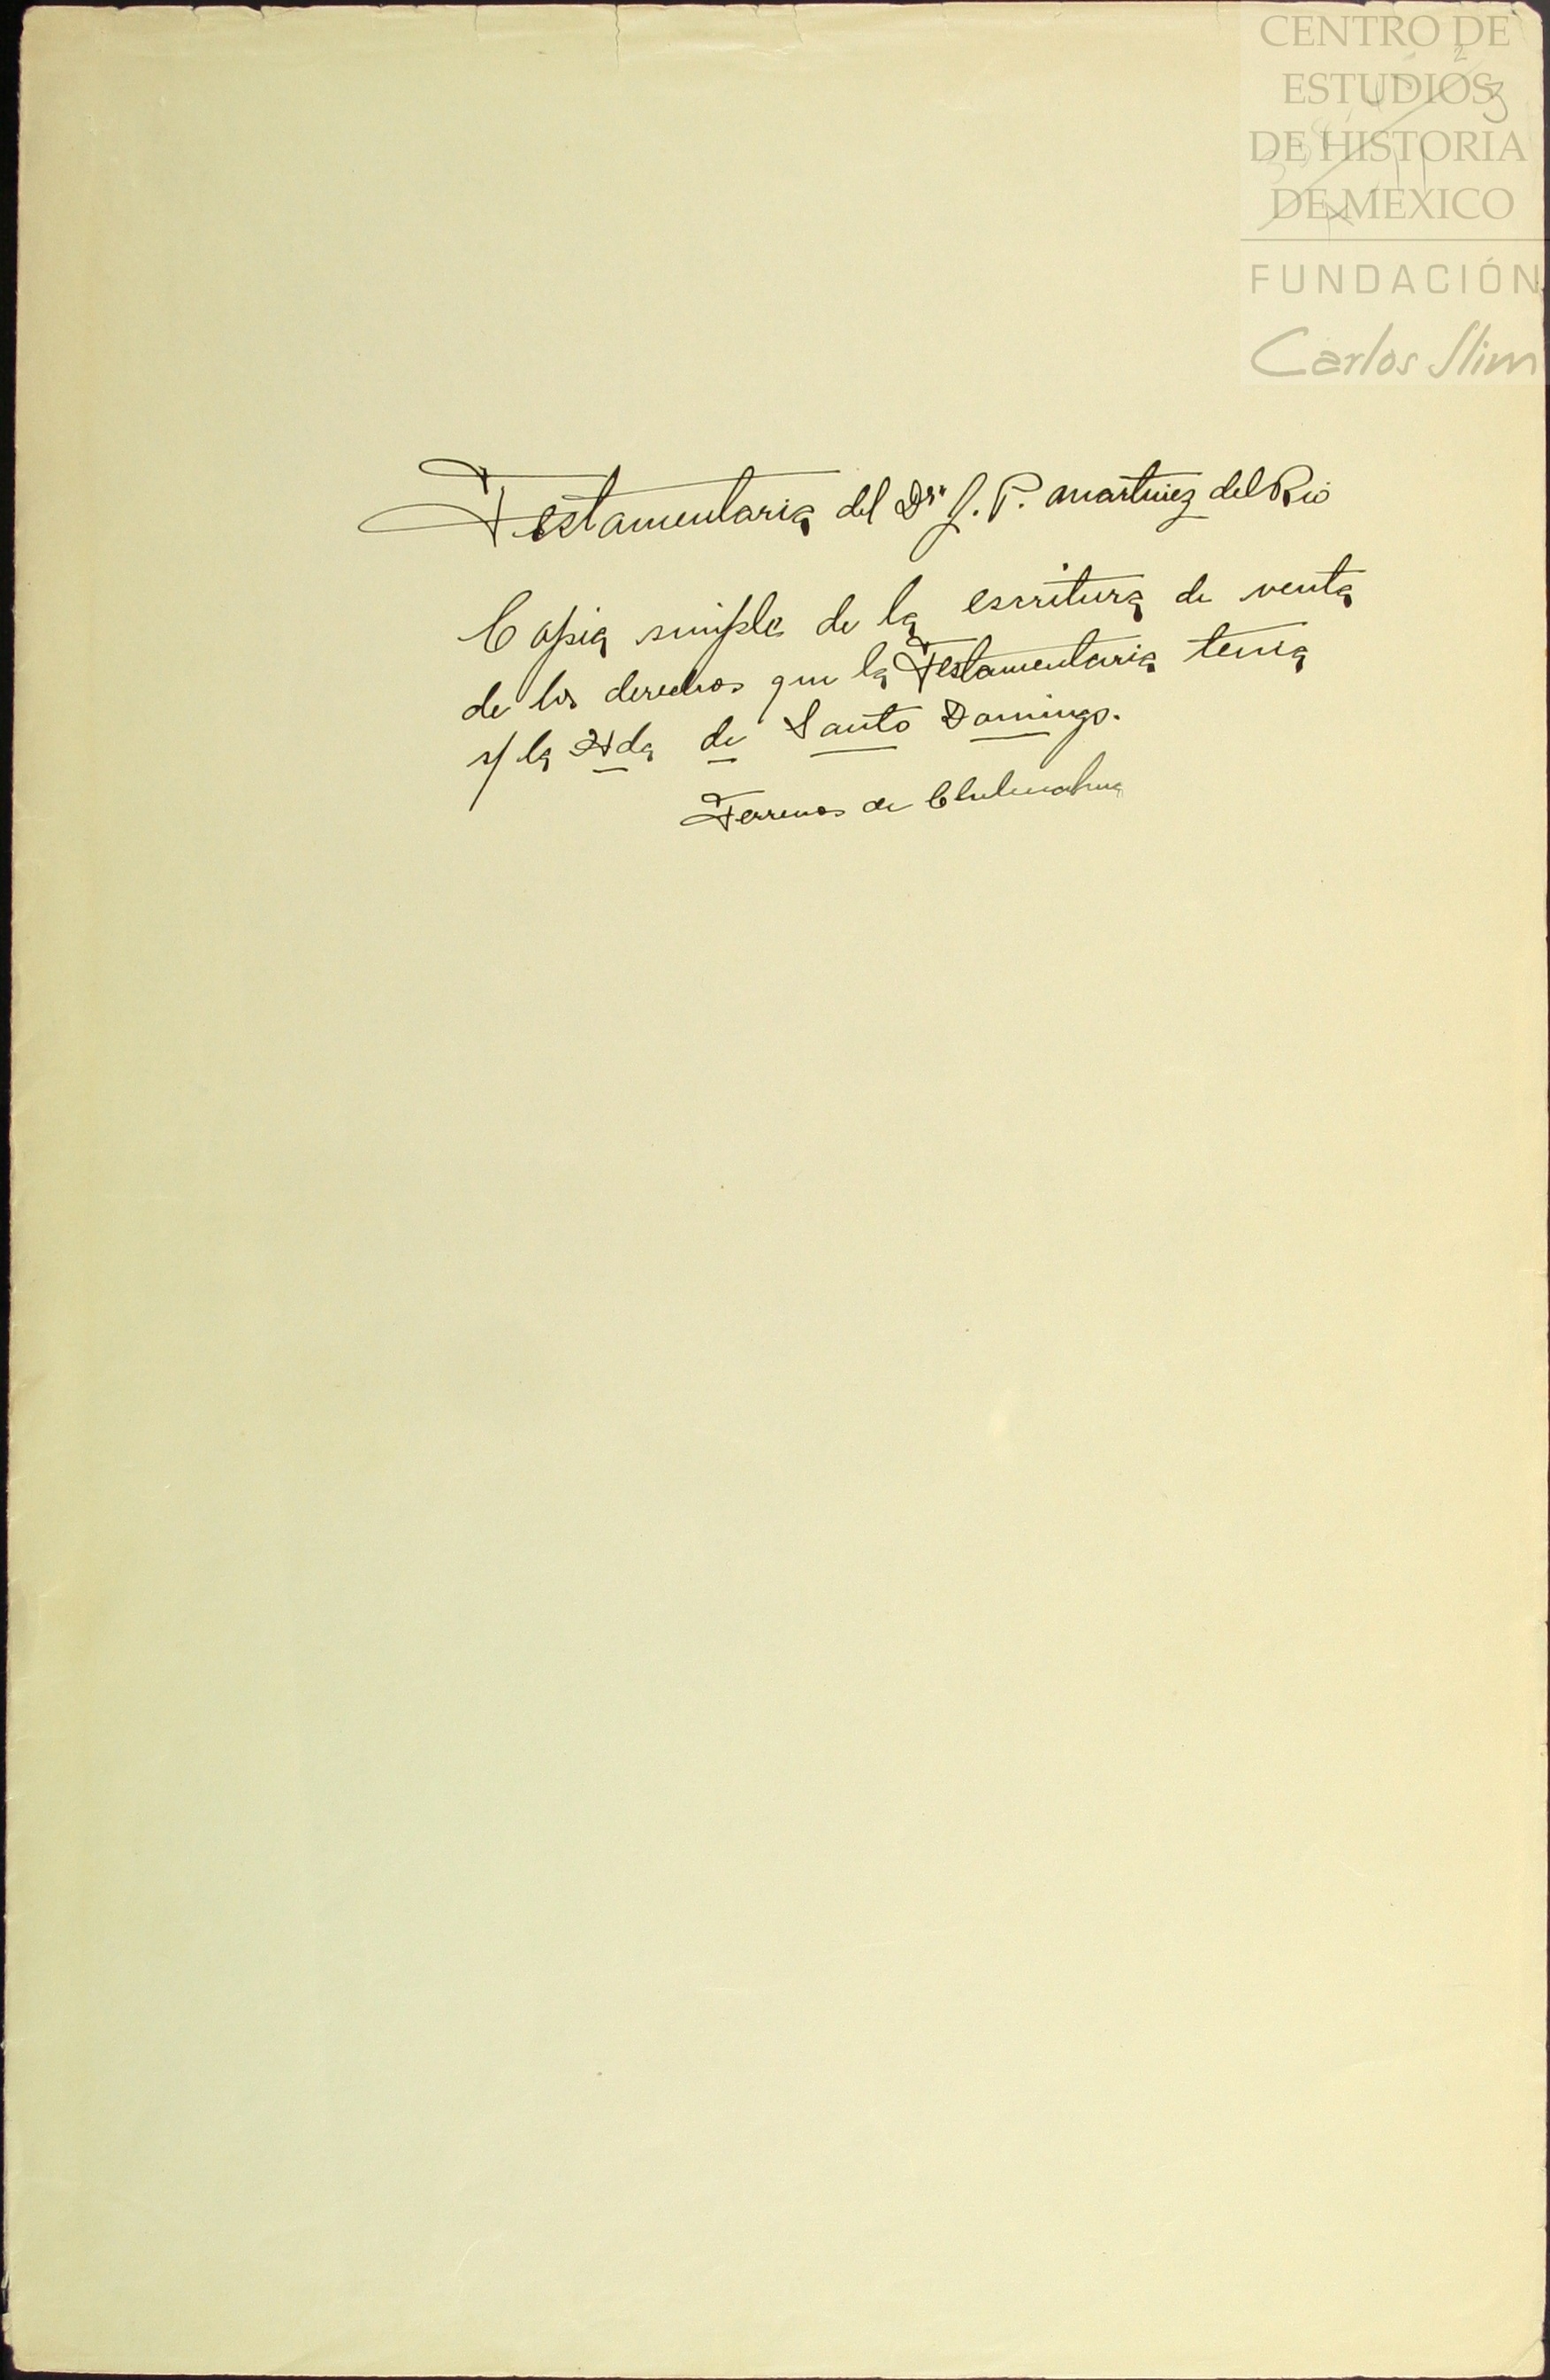 CENTRO DE
ESTUDIOS
DE HISTORIA
DE MEXICO
FUNDACIÓN
Carlos Slim
Testamentaria del Dr. J. P. Martinez del Rio
Copia simple de la escritura de venta
de los derechos que la Testamentaria tenia
s/ la Hda de Santo Domingo.
Terrenos de Chihuahua